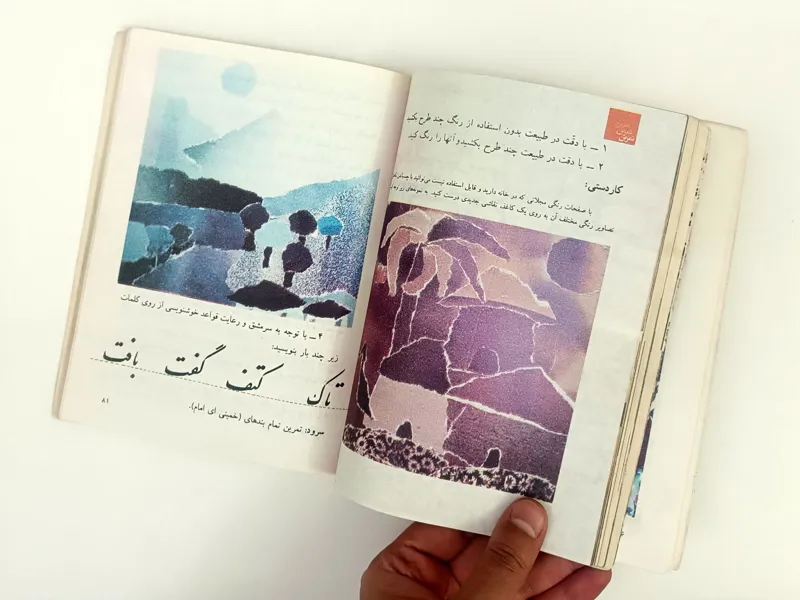 تمرین
۱ ــ با دقّت در طبیعت بدون استفاده از رنگ چند طرح بکشید
۲ ــ با دقت در طبیعت چند طرح بکشید و آنها را رنگ کنید
کاردستی:
با صفحات رنگی مجلاتی که در خانه دارید و قابل استفاده نیست می‌توانید با چسبانیدن
تصاویر رنگی مختلف آن به روی یک کاغذ نقاشی جدیدی درست کنید. به نمونه‌های زیر توجه
۴ ــ با توجه به سرمشق و رعایت قواعد خوشنویسی از روی کلمات
زیر چند بار بنویسید:
تاک کتف گفت بافت
سرود: تمرین تمام بندهای (خمینی ای امام).
۸۱